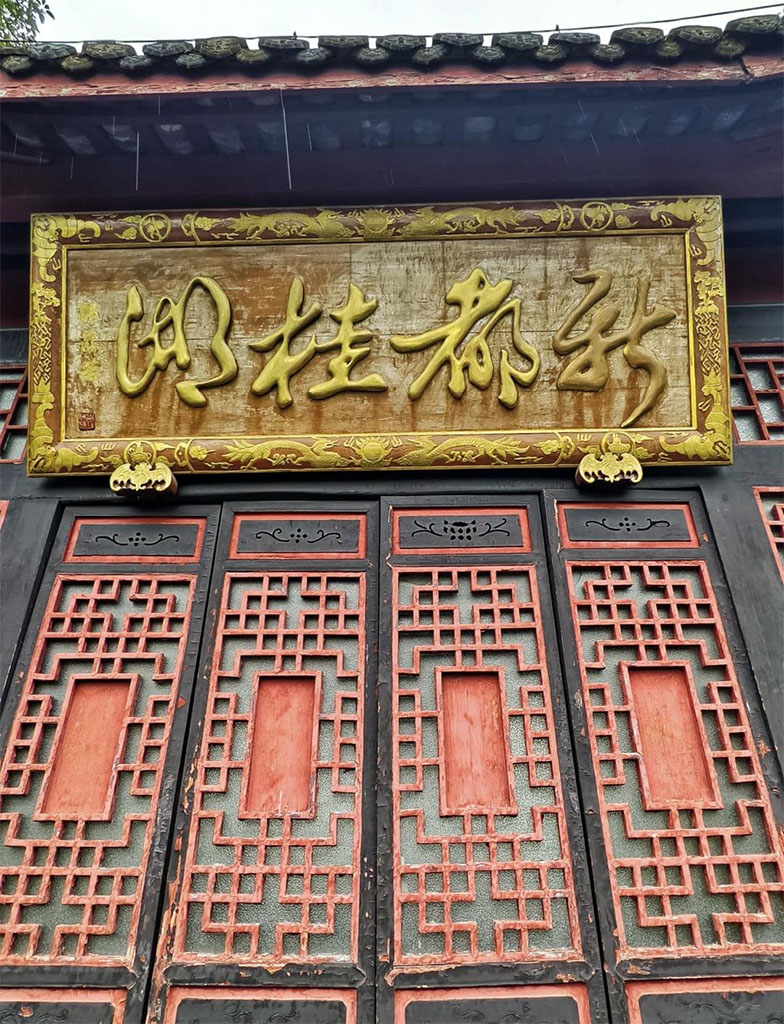 新都桂湖